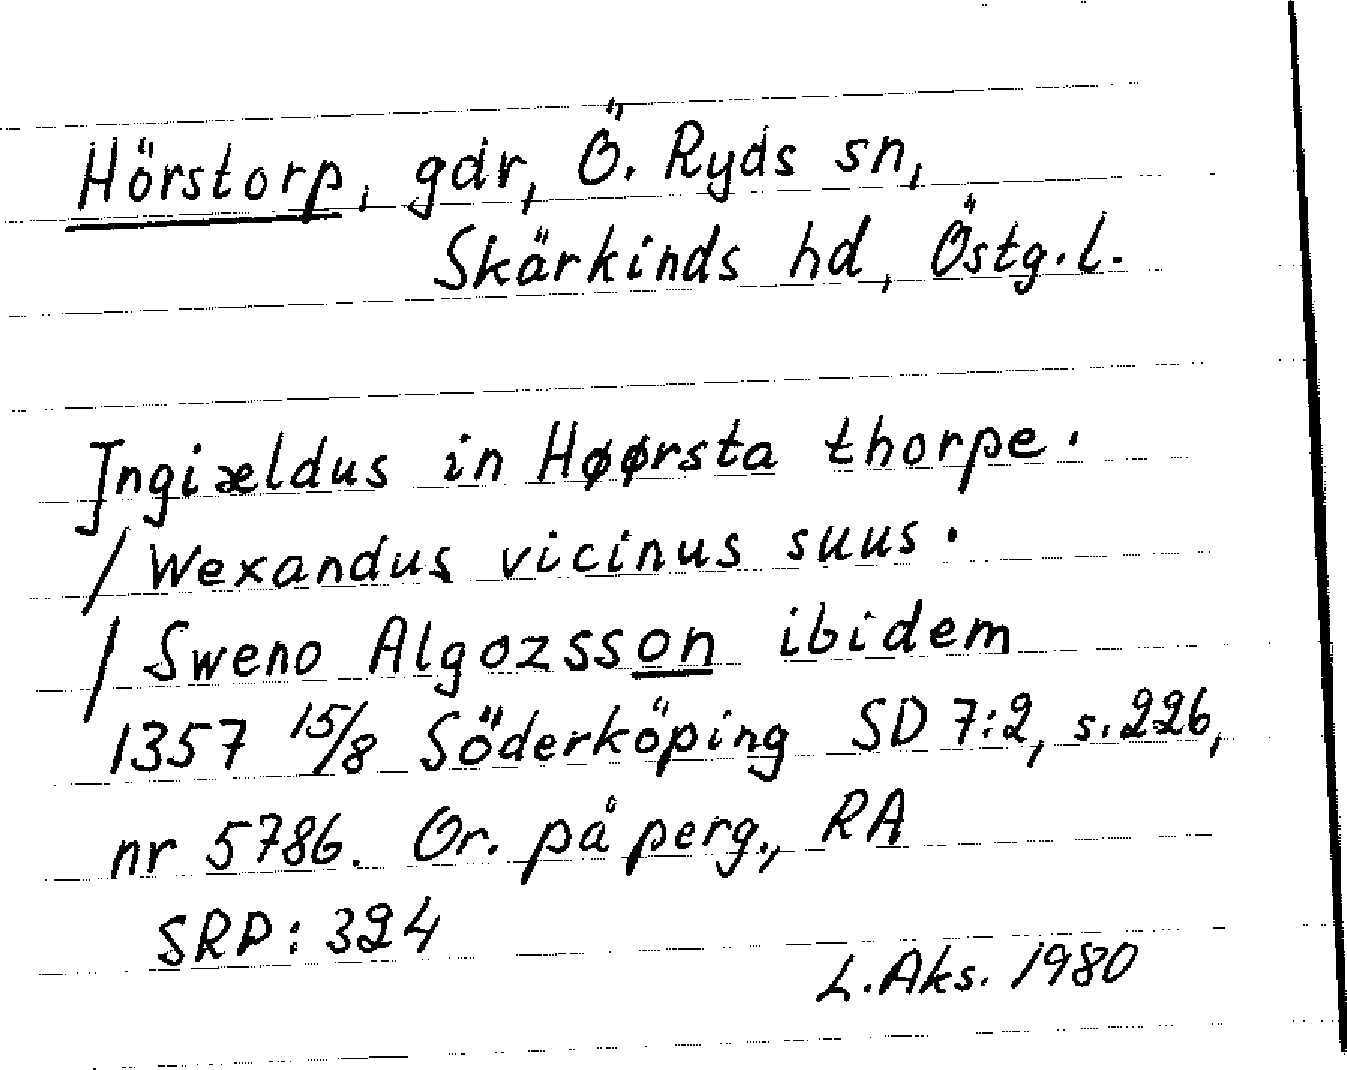 Hörstorp, gdr, Ö. Ryds sn,
Skärkinds hd, Östg.l.
Jngiældus in Høørsta thorpe.
/ Wexandus vicinus suus.
/ Sweno Algozsson ibidem
1357 15/8 Söderköping SD 7:2, s. 226,
nr 5786. Or. på perg., RA
SRP: 324
L. Aks. 1980